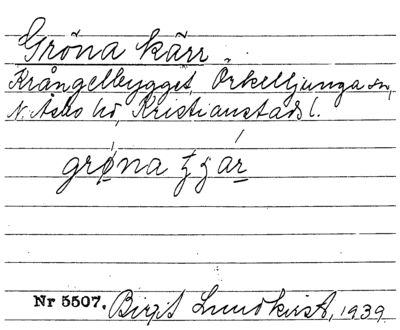 Gröna kärr
Krångelbygget, Örkelljunga sn,
N. Åsbo hd, Kristianstads l.
grøna
Nr 5507. Birgit Lundkvist, 1939